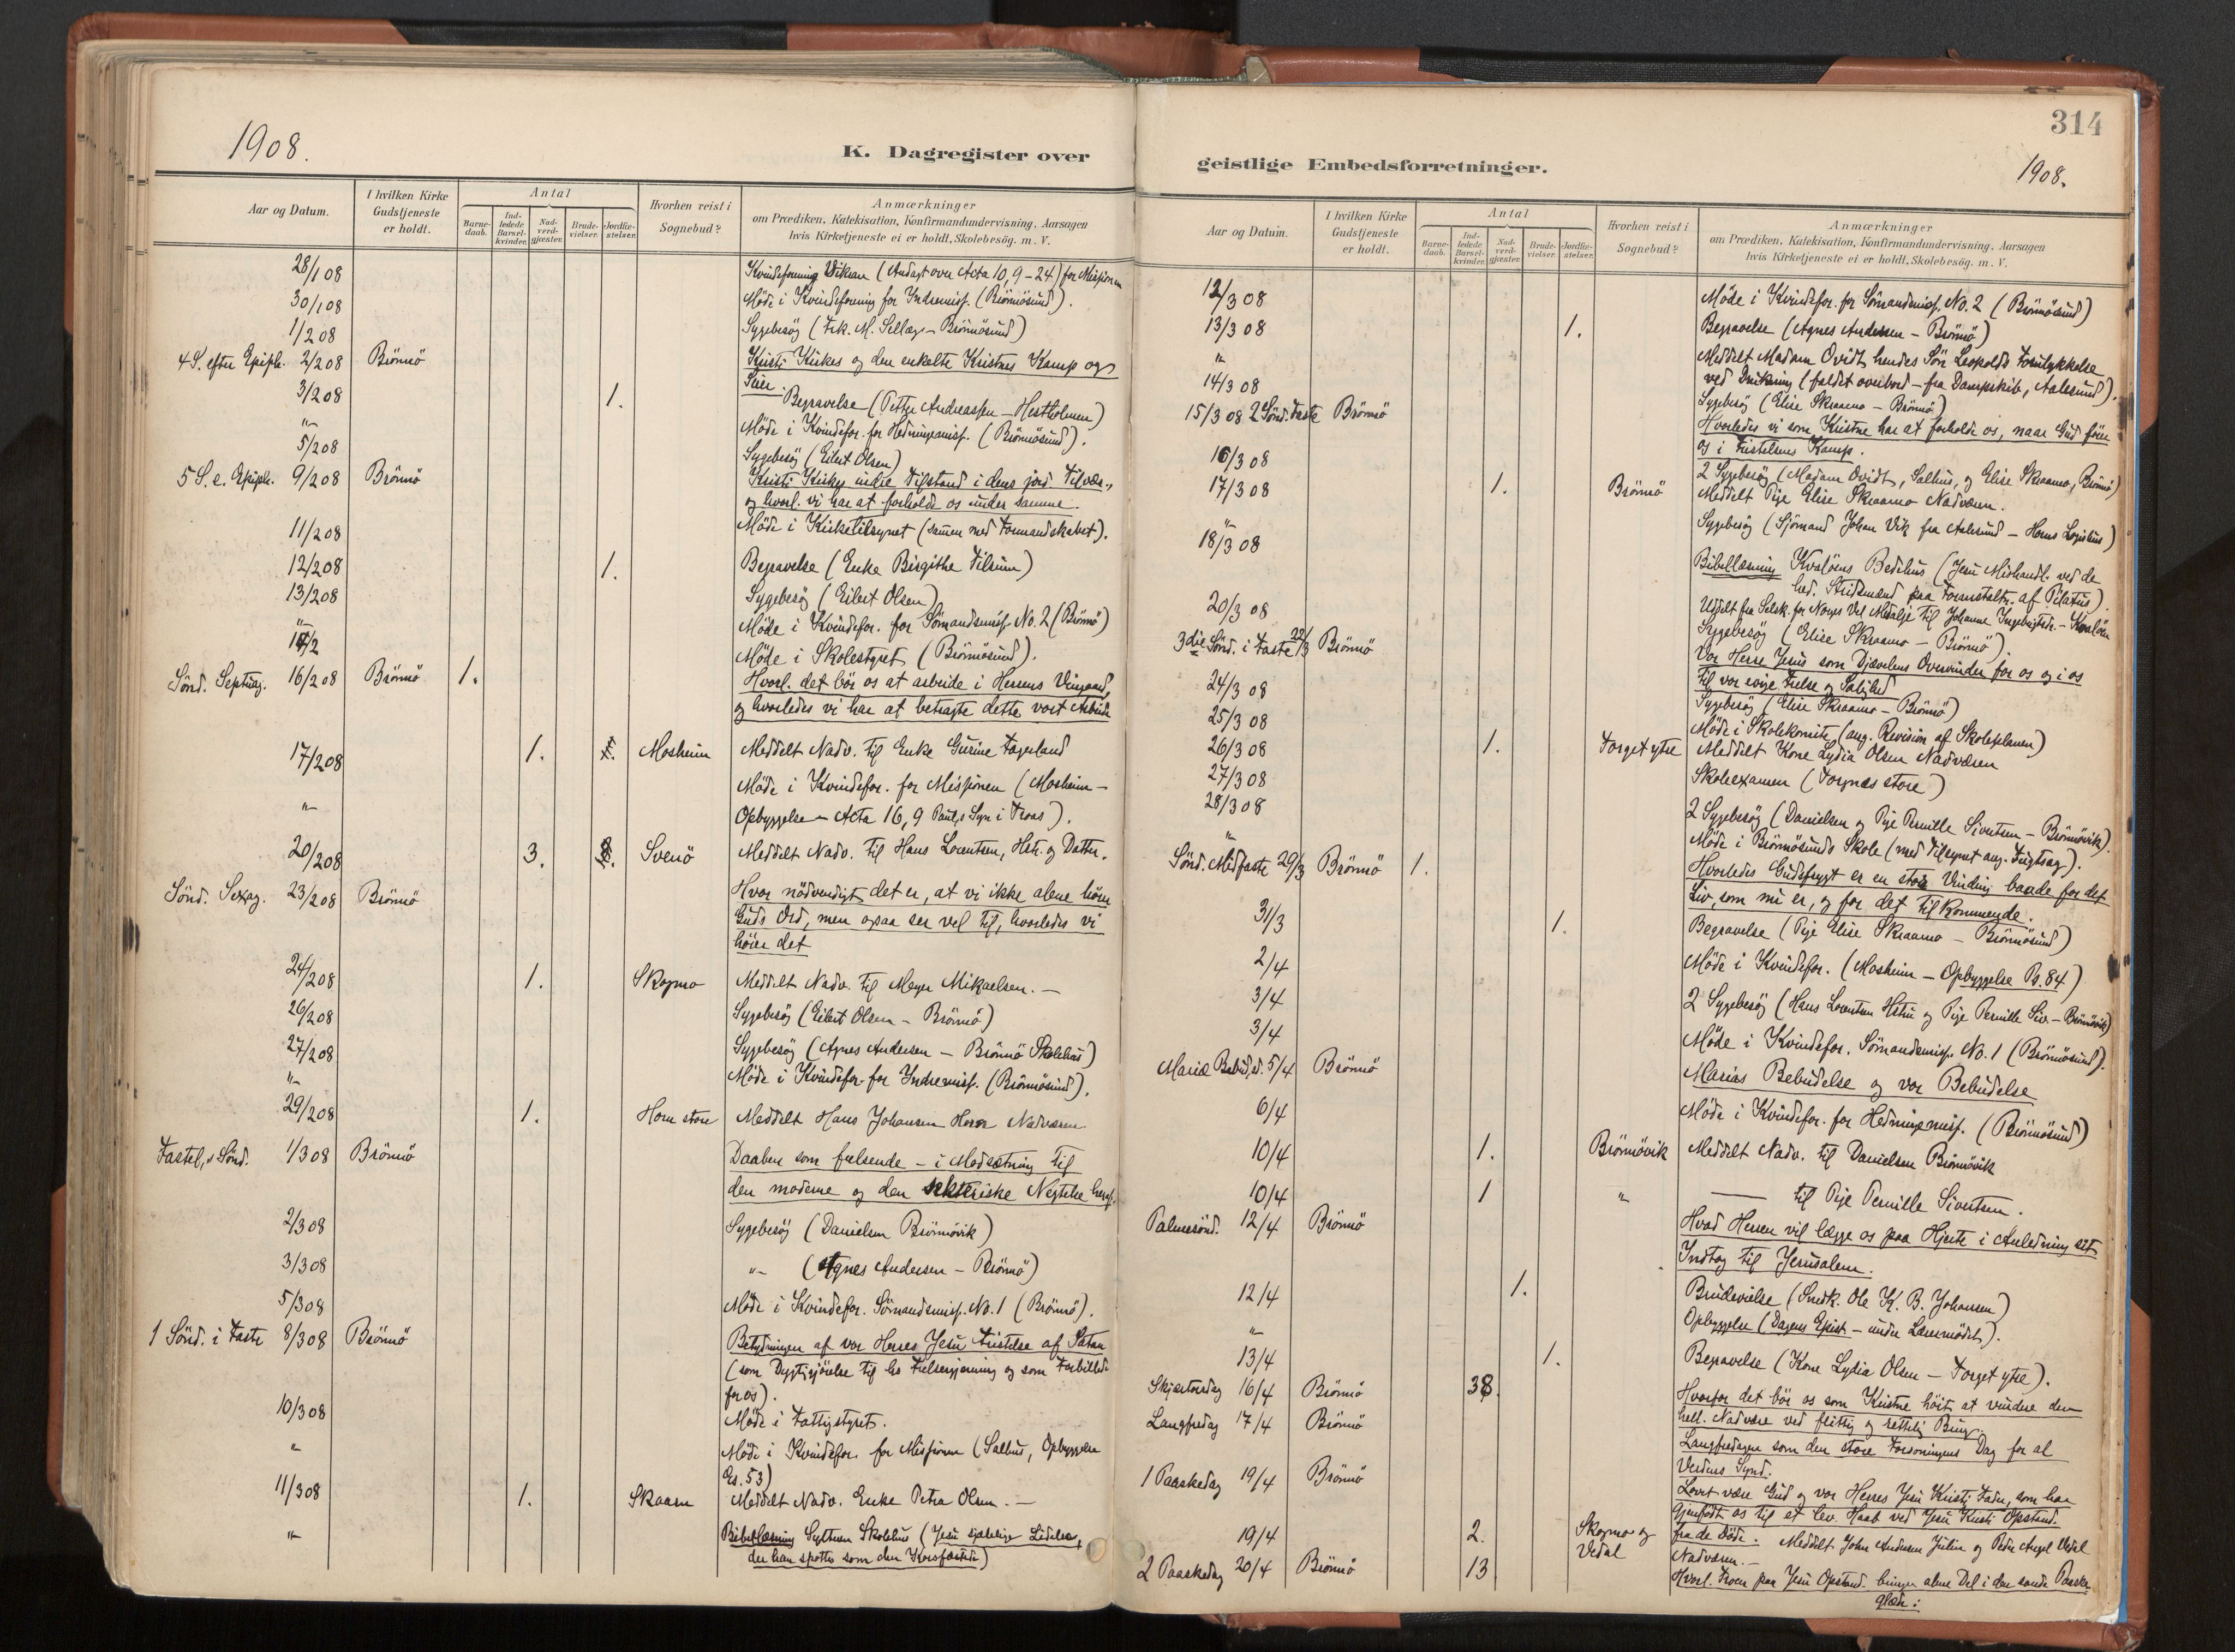 1908.
K. Dagregister over
Aar og Datum.
I hvilken Kirke Gudstjeneste er holdt.
Antal
Barne-daab.
Ind-ledede Barsel-kvinder.
Nad-verd-gjæster.
Brude-vielser.
Jordfæ-stelser.
Hvorhen reist i Sognebud?
Anmærkninger
om Prædiken, Katekisation, Konfirmandundervisning, Aarsagen
hvis Kirketjeneste ei er holdt, Skolebesög. m. V.
28/1 08 Kvindeforening Vikran (Andagt over Acta 10, 9-24) for Missjonen
30/1 08 Möde i Kvindeforening for Indremisj. (Brönnösund).
1/2 08 Sygebesög (Frk. M. Sellæg - Brönnösund)
4 S. efter Epiph. 2/2 08 Brönnö Kristi Kirkes og den enkelte Kristnes Kamp og
Seier.
3/2 08 1. Begravelse (Petter Andreassen - Hestholmen)
"- Möde i Kvindefor. for Hedningemisj. (Brönnösund).
5/2 08 Sygebesög (Eilert Olsen)
5 S. e. Epiph. 9/2 08 Brönnö Kristi Kirkes indre Tilstand i dens jord. Tilvær.,
og hvorl. vi har at forholde os under samme.
11/2 08 Möde i Kirketilsynet (sammen med Formandskabet).
12/2 08 1. Begravelse (Enke Birgithe Tilrem)
13/2 08 Sygebesög (Eilert Olsen)
"- Möde i Kvindefor. for Sömandsmisj. No. 2 (Brönnö)
14/2 Möde i Skolestyret (Brönnösund).
Sönd. Septuag. 16/2 08 Brönnö 1. Hvorl. det bör os at arbeide i Herrens Vingaard,
og hvorledes vi har at betragte dette vort Arbeide
17/2 08 1. Mosheim Meddelt Nadv. til Enke Gurine Fageland
"- Möde i Kvindefor. for Missjonen (Mosheim -
Opbyggelse - Acta 16, 9 Paul,s Syn i Troas).
20/2 08 3. Svenö Meddelt Nadv. til Hans Lorentsen, Hstr. og Datter.
Sönd. Sexag. 23/2 08 Brönnö Hvor nödvendigt det er, at vi ikke alene hörer
Guds Ord, men ogsaa ser vel til, hvorledes vi
hörer det
24/2 08 1. Skogmo Meddelt Nadv. til Meyer Mikaelsen. -
26/2 08 Sygebesög (Eilert Olsen - Brönnö)
27/2 08 Sygebesög (Agnes Andersen - Brönnö Skolehus)
"- Möde i Kvindefor. for Indremisj. (Brönnösund).
29/2 08 1. Horn store Meddelt Hans Johansen Horn Nadveren
Fastel,s Sönd. 1/3 08 Brönnö Daaben som frelsende - i Modsætning til
den moderne og den sekteriske Negtelse heraf.
2/3 08 Sygebesög (Danielsen Brönnövik)
3/3 08 "- (Agnes Andersen - Brönnö)
5/3 08 Möde i Kvindefor. Sömandsmisj. No. 1 (Brönnö).
1 Sönd. i Faste 8/3 08 Brönnö Betydningen af vor Herres Jesu Fristelse af Satan
(som Dygtigjörelse til hs Frelsergjerning og som Forbillede
for os).
10/3 08 Möde i Fattigstyret.
" Möde i Kvindefor. for Missjonen (Salhus, Opbyggelse
Es. 53)
11/3 08 1. Skaarn Meddelt Nadv. Enke Petra Olsen. -
"- Bibellæsning Sylteren Skolehus (Jesu sjælelige Lidelse,
der han spottes som den Korsfæstede)
314
geistlige Embedsforretninger.
1908.
Aar og Datum.
I hvilken Kirke Gudstjeneste er holdt.
Antal
Barne-daab.
Ind-ledede Barsel-kvinder.
Nad-verd-gjæster.
Brude-vielser.
Jordfæ-stelser.
Hvorhen reist i Sognebud?
Anmærkninger
om Prædiken, Katekisation, Konfirmandundervisning, Aarsagen
hvis Kirketjeneste ei er holdt, Skolebesög. m. V.
12/3 08 Möde i Kvindefor. for Sömandsmisj. No. 2 (Brönnösund)
13/3 08 1. Begravelse (Agnes Andersen - Brönnö)
"- Meddelt Madam Ovidt hendes Sön Leopolds Forulykkelse
ved Drukning (faldet overbord - fra Dampskib, Aalesund).
14/3 08 Sygebesög (Elise Skraamo - Brönnö)
15/3 08 2 Sönd. Faste Brönnö Hvorledes vi som Kristne har at forholde os, naar Gud förer
os i Fristelsens Kamp.
16/3 08 2 Sygebesög (Madam Ovidt, Salhus, og Elise Skraamo, Brönnö)
17/3 08 1. Brönnö Meddelt Pige Elise Skraamo Nadveren.
"- Sygebesög (Sjömand Johan Vik fra Aalesund - Horns Logihus)
18/3 08 Bibellæsning Kvalöens Bedehus (Jesu Mishandl. ved de
hed. Stridsmænd paa Foranstaltn. af Pilatus)
Uddelt fra Selsk. for Norges Vel Medalje til Johanne Ingebrigtsdr. - Kvalöen
20/3 08 Sygebesög (Elise Skraamo - Brönnö)
3die Sönd. i Faste 22/3 Brönnö Vor Herre Jesus som Djævelens Overvinder for os og i os
til vor evige Frelse og Salighed
24/3 08 Sygebesög (Elise Skraamo - Brönnö)
25/3 08 Möde i Skolekomite (ang. Revision af Skoleplanen)
26/3 08 1. Torget ytre Meddelt Kone Lydia Olsen Nadveren
27/3 08 Skoleexamen (Torgnæs store)
28/3 08 2 Sygebesög (Danielsen og Pige Pernille Sivertsen - Brönnövik).
"- Möde i Brönnösunds Skole (med Tilsynet ang. Tugtsag).
Sönd. Midfaste 29/3 Brönnö 1. Hvorledes Gudsfrygt er en stor Vinding baade for det
Liv, som nu er, og for det tilkommende.
31/3 1. Begravelse (Pige Elise Skraamo - Brönnösund)
2/4 Möde i Kvindefor. (Mosheim - Opbyggelse Ps. 84)
3/4 2 Sygebesög (Hans Lorentsen Hstru og Pige Pernille Siv. - Brönnövik)
3/4 Möde i Kvindefor. Sömandsmisj. No. 1 (Brönnösund).
Mariæ Bebud.,d. 5/4 Brönnö Marias Bebudelse og vor Bebudelse
6/4 Möde i Kvindefor. for Hedningemisj. (Brönnösund)
10/4 1. Brönnövik Meddelt Nadv. til Danielsen Brönnövik
10/4 1 "- —— til Pige Pernille Sivertsen.
Palmesönd. 12/4 Brönnö Hvad Herren vil lægge os paa Hjerte i Anledning sit
Indtog til Jerusalem.
12/4 1. Brudevielse (Snedk. Ole K. B. Johansen)
"- Opbyggelse (Dagens Epist. - under Læremödet).
13/4 1. Begravelse (Kone Lydia Olsen - Torget ytre).
Skjærtorsdag 16/4 Brönnö 38. Hvorfor det bör os som Kristne höit at vurdere den
hell. Nadvere ved flittig og rettelig Brug.
Langfredag 17/4 Brönnö Langfredagen som den store Forsoningens Dag for al
Verdens Synd.
1 Paaskedag 19/4 Brönnö Lovet være Gud og vor Herres Jesu Kristi Fader, som har
gjenfödt os til et lev. Haab ved Jesu Kristi Opstand.
fra de Döde.
19/4 2. Skogmo og Vedal Meddelt John Andersen Julin og Peder Angel Vedal
Nadveren. -
2 Paaskedag 20/4 Brönnö 13 Hvorl. Troen paa Jesu Opstand. bringer alene Del i den sande Paaske
glæde.